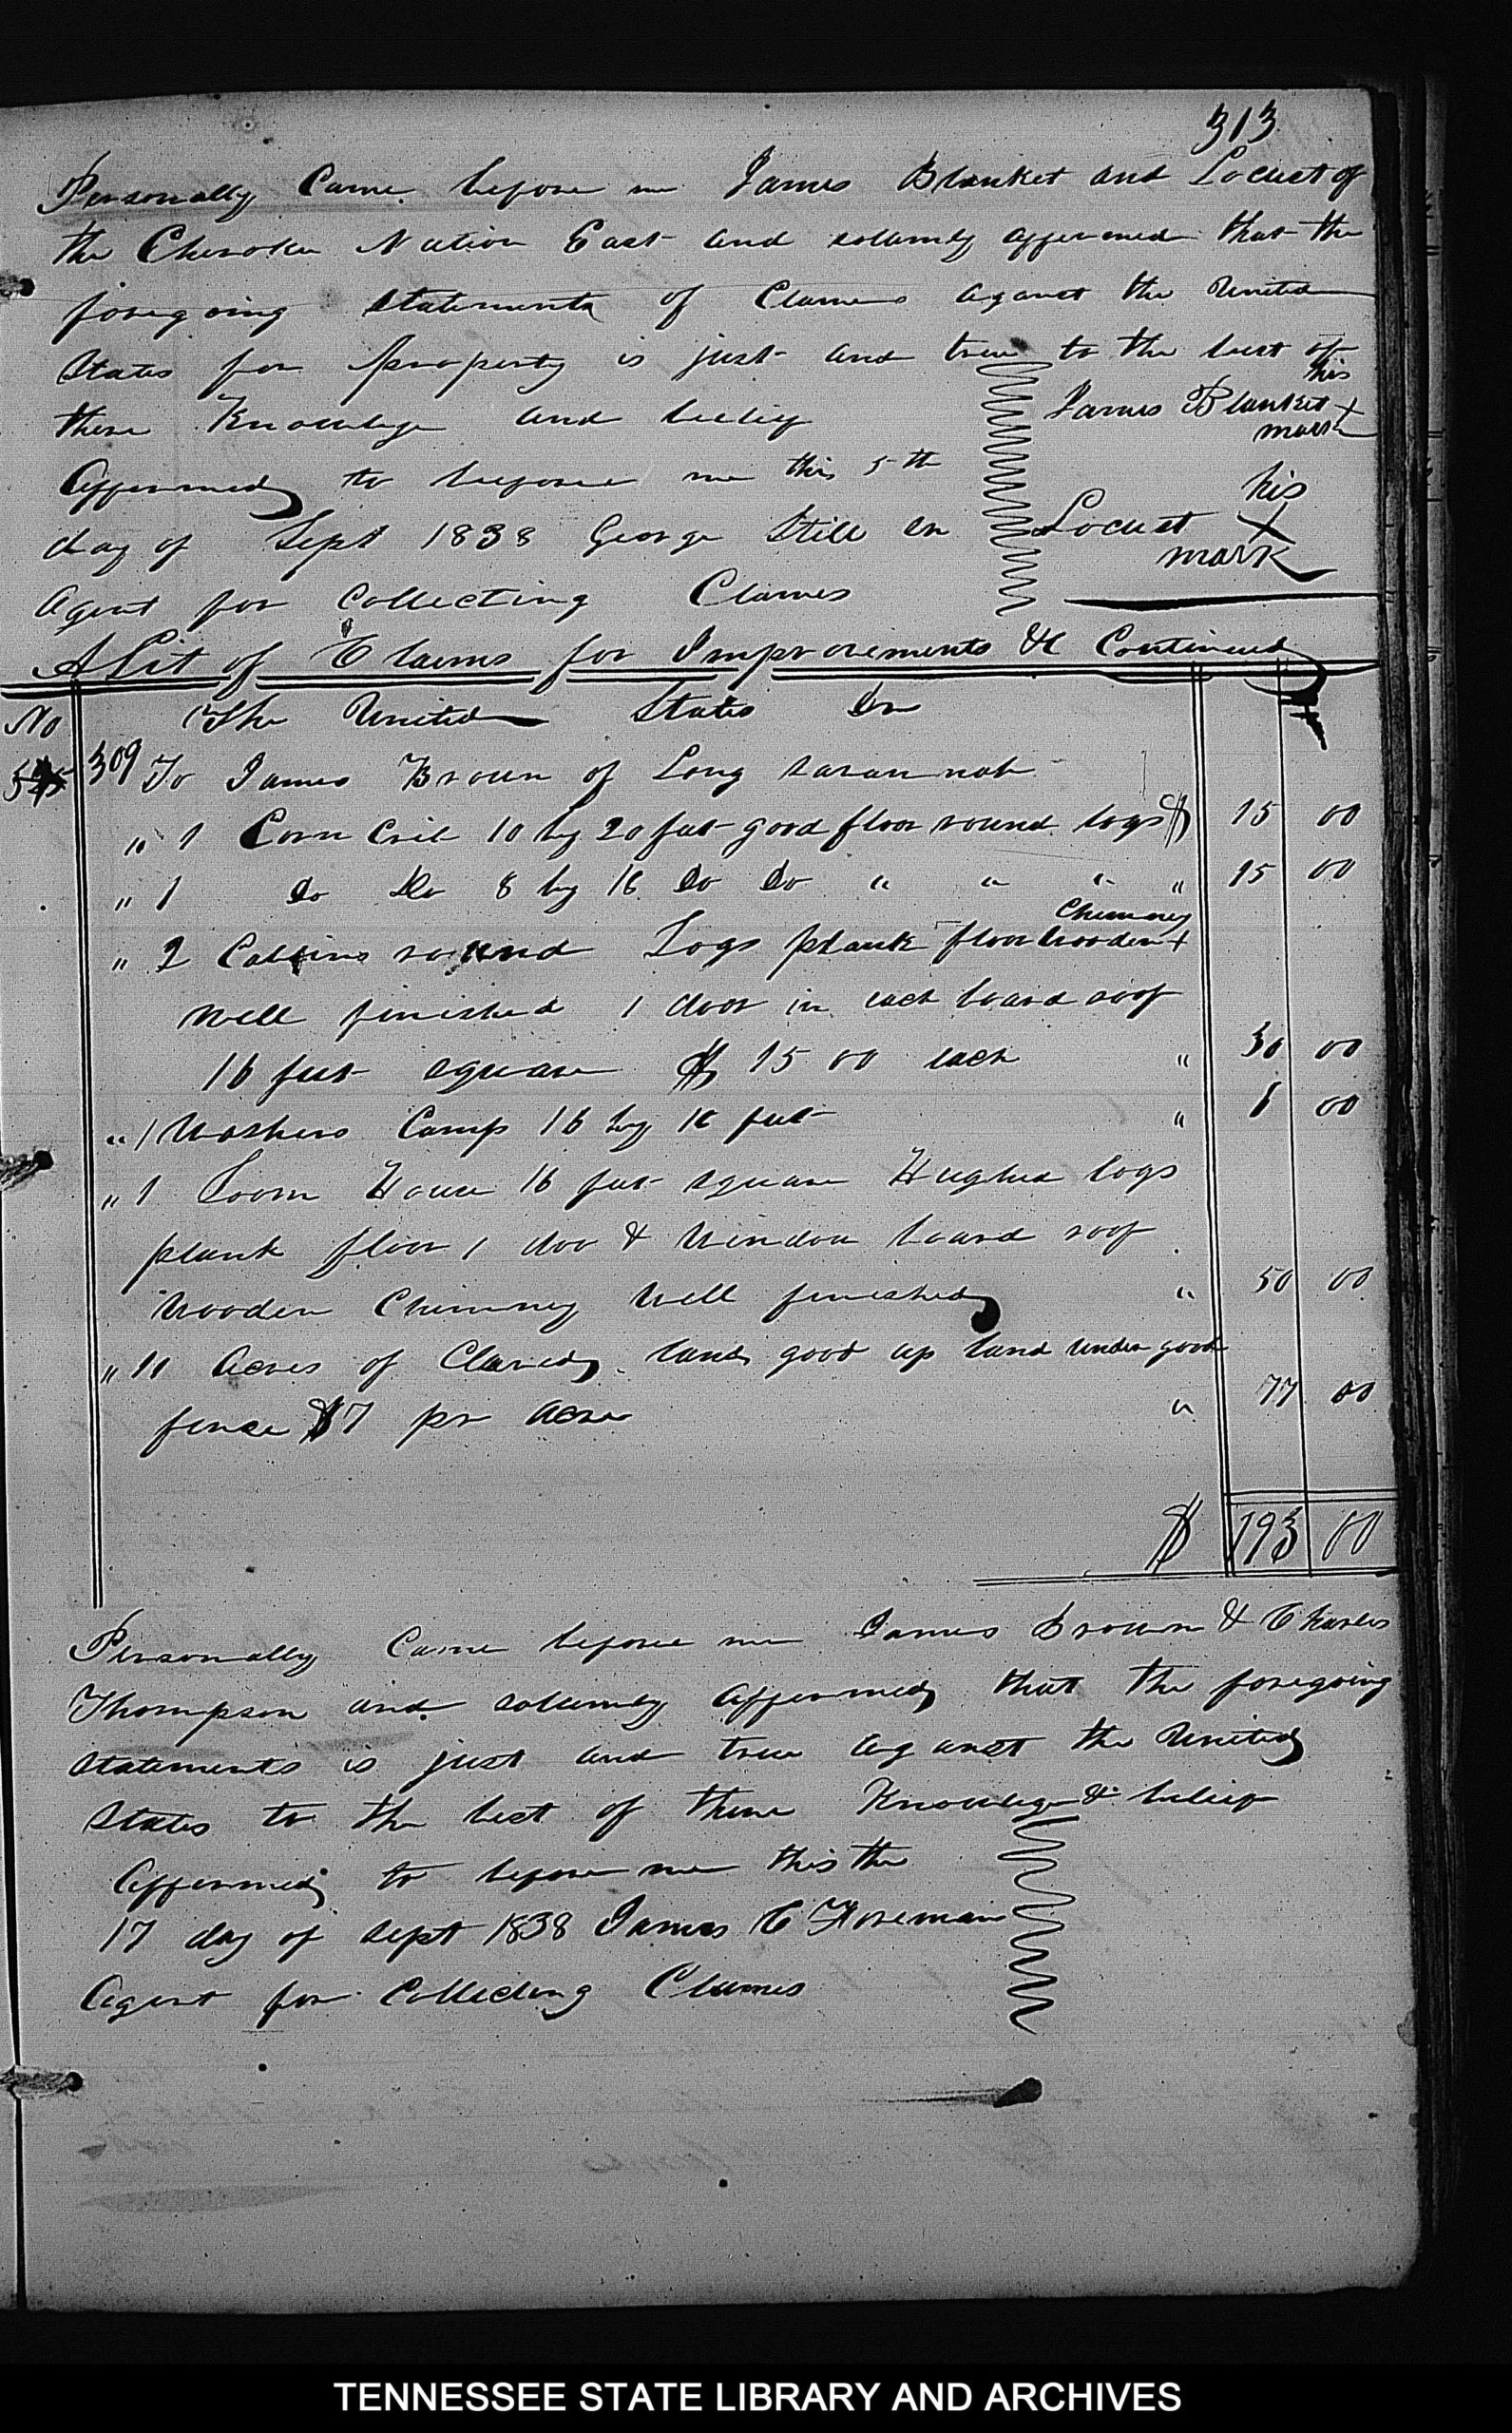 313
Personally Came before me James Blanket and Locust of
the Cherokee Nation East and solamly affermed that the
foregoing statements of Clames aganst the United
States for property is just and true to the best of
there Knowlege and beleif
his
James Blanket X
mark
Affermed to before me this 5th
day of Sept 1838 George Still Sn
Agent for Collecting Clames
his
Locust X
mark
A List of Claims for Improvements &c Continued
No The United States Dr
525 309 To James Brown of Long Savannah
" 1 Corn Crib 10 by 20 feet good floor round logs $ 15 00
" 1 Do Do 8 by 16 Do Do " " " " 15 00
Chimney
" 2 Cabbins round Logs plank floor Wooden +
Well finished 1 door in each board roof
16 feet square $ 15 00 each " 30 00
" 1 Washers Camp 16 by 16 feet " 6 00
" 1 Loom House 16 feet square Hughed logs
plank floor 1 doo & Window board roof
Wooden Chimney Well finished " 50 00
" 11 Acres of Clared land good up land under good
fence $7 pr Acre " 77 00
$ 193 00
Personally Came before me James Brown & Charles
Thompson and solumly affermed that the foregoing
statements is just and true aganst the United
States to the best of there Knowlege & beleif
Affermed to before me this the
17 day of Sept 1838 James C Foreman
Agent for Collecting Clames
TENNESSEE STATE LIBRARY AND ARCHIVES